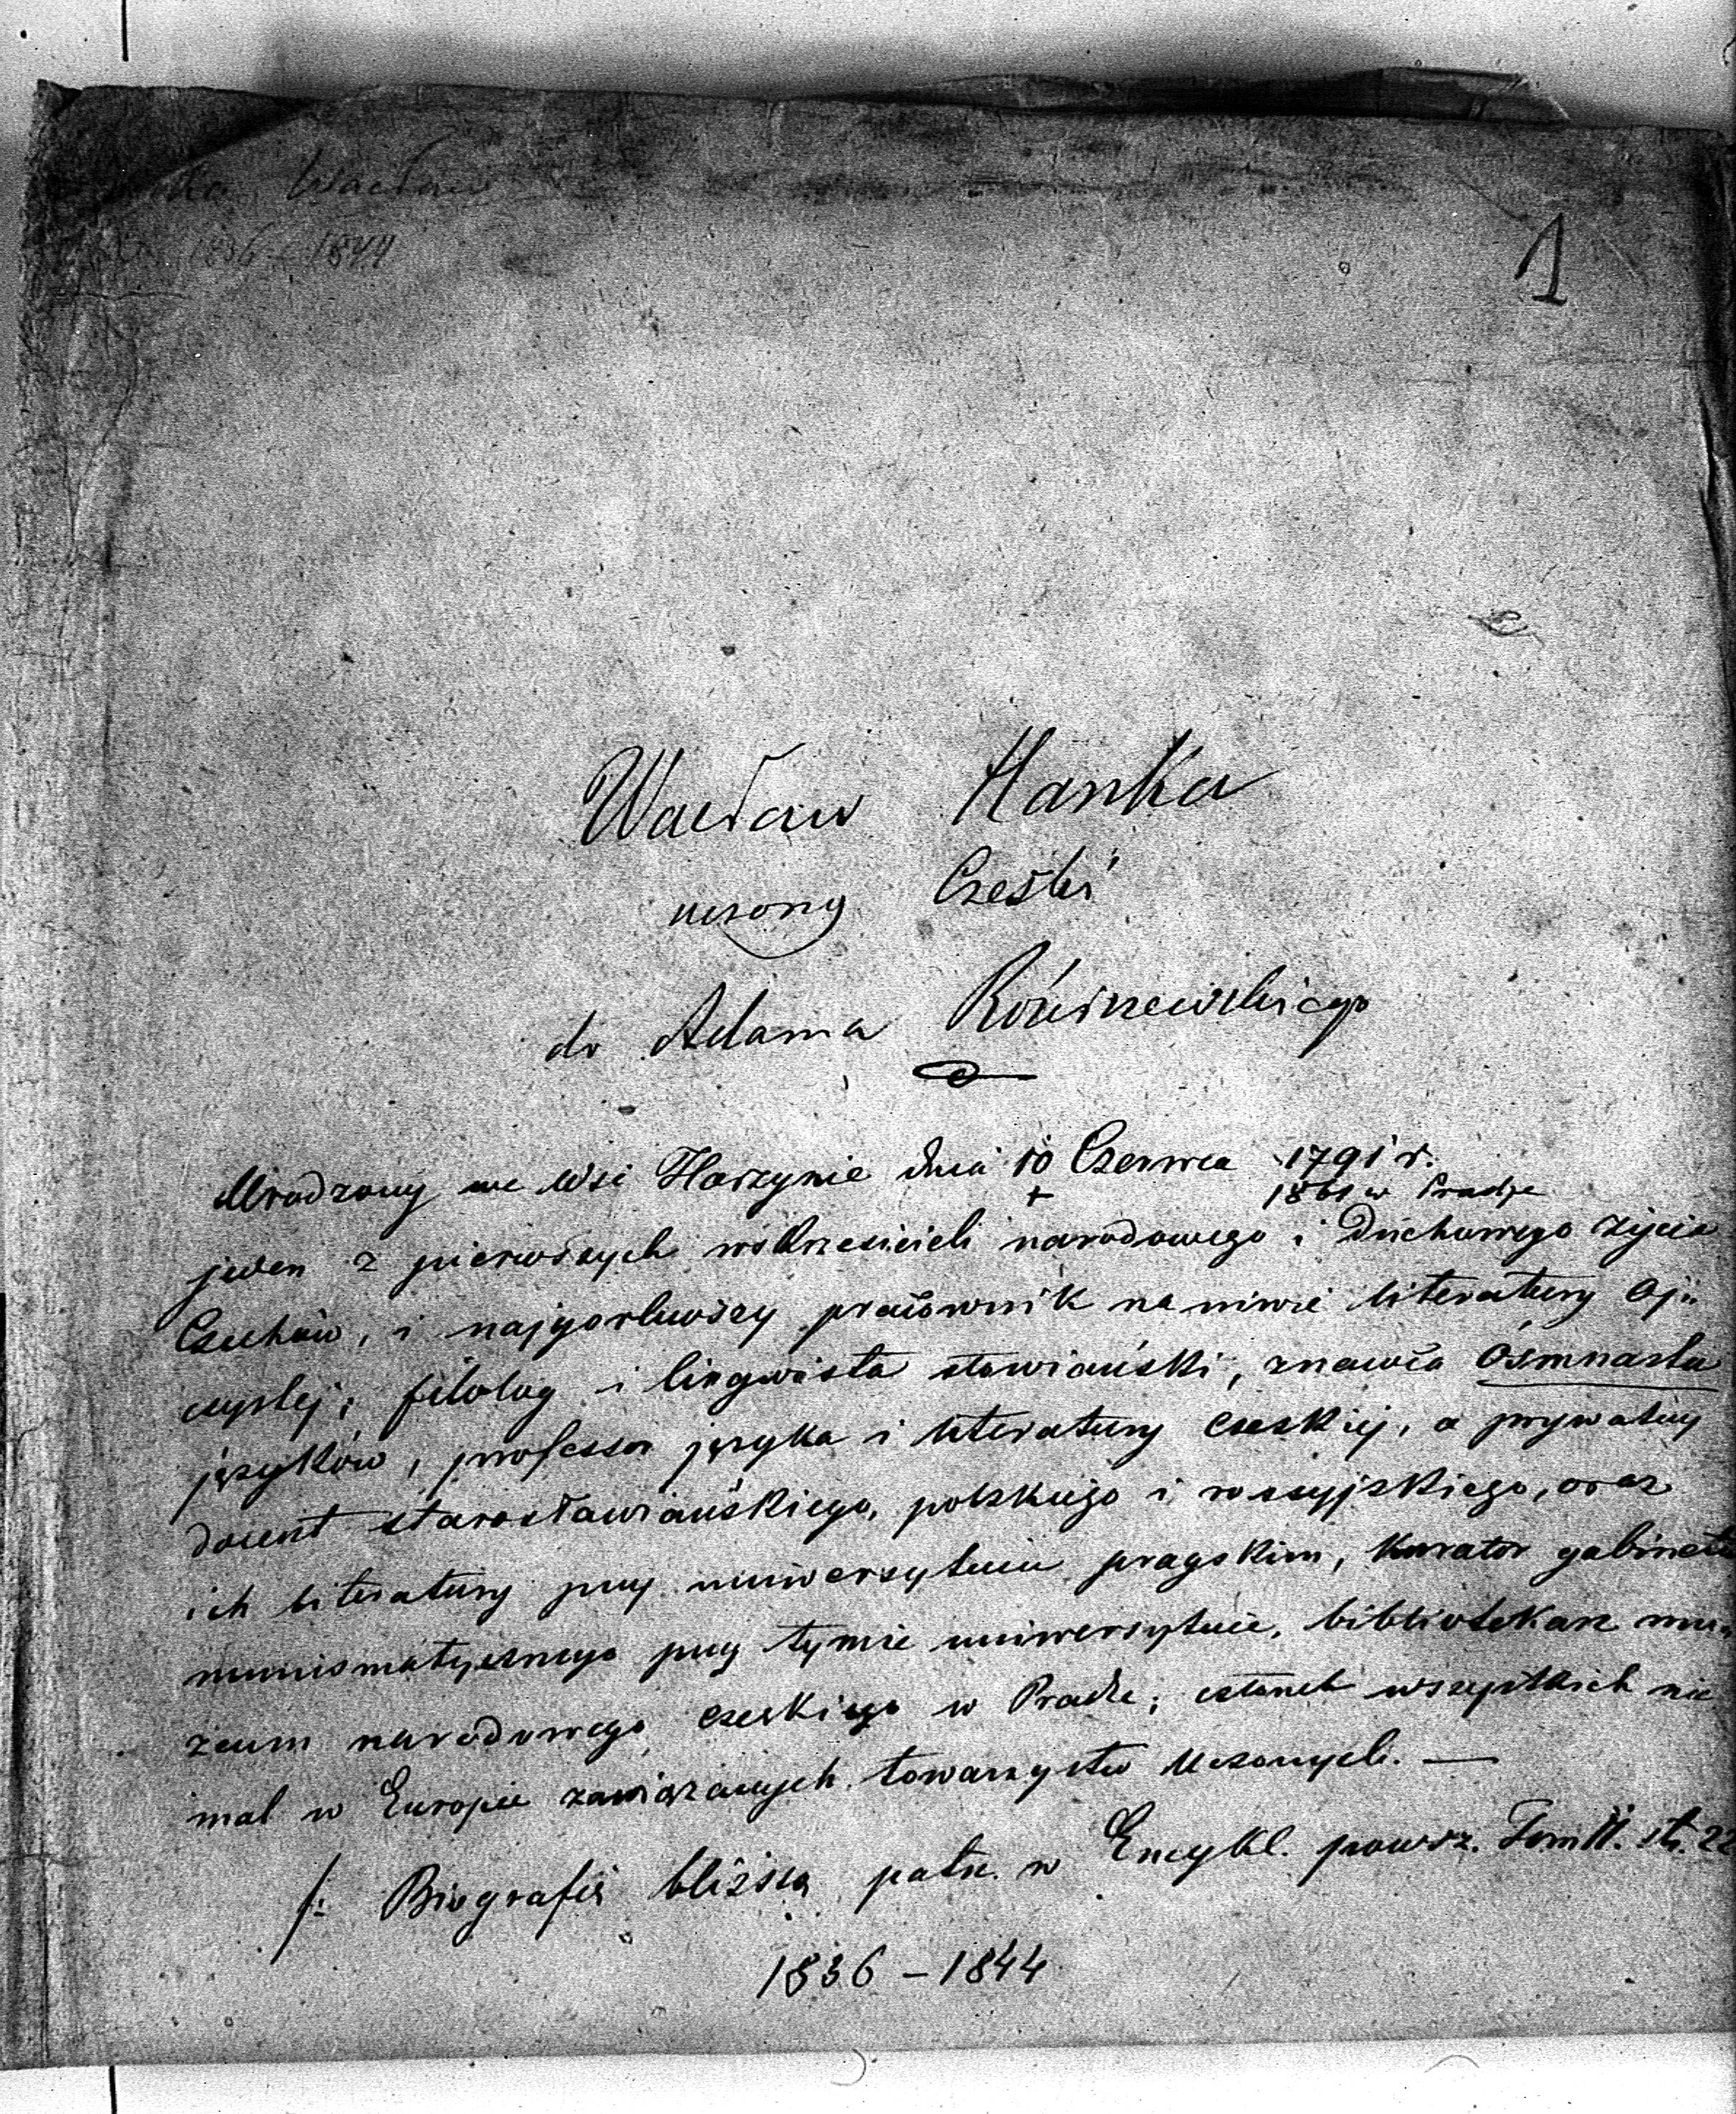 Wacław
1836 - 1844
1
Wacław Hanka
uczony Czeski
do Adama Rościszewskiego
Urodzony we Wsi Horzynie dnia 10 Czerwca 1791 r.
+ 1861 w Pradze
jeden z pierwszych wskrzesicieli narodowego i duchowego życia
Czechów, i najgorliwszy pracownik na niwie literatury oj„
czystej; filolog i lingwista słowiański, znawca Ósmnastu
języków, professor języka i literatury czeskiej, a prywatny
docent starosławiańskiego, polskiego i rossyjskiego, oraz
ich literatury przy uniwersytecie pragskim, Kurator gabinetu
numismatycznego przy tymże uniwersytecie, bibliotekarz mu„
zeum narodowego czeskiego w Pradze; członek wszystkich nie
mal w Europie zawiązanych towarzystw uczonych. —
/: Biografia bliższa patrz. w Encykl. powsz. Tom II. str. 22
1836 – 1844